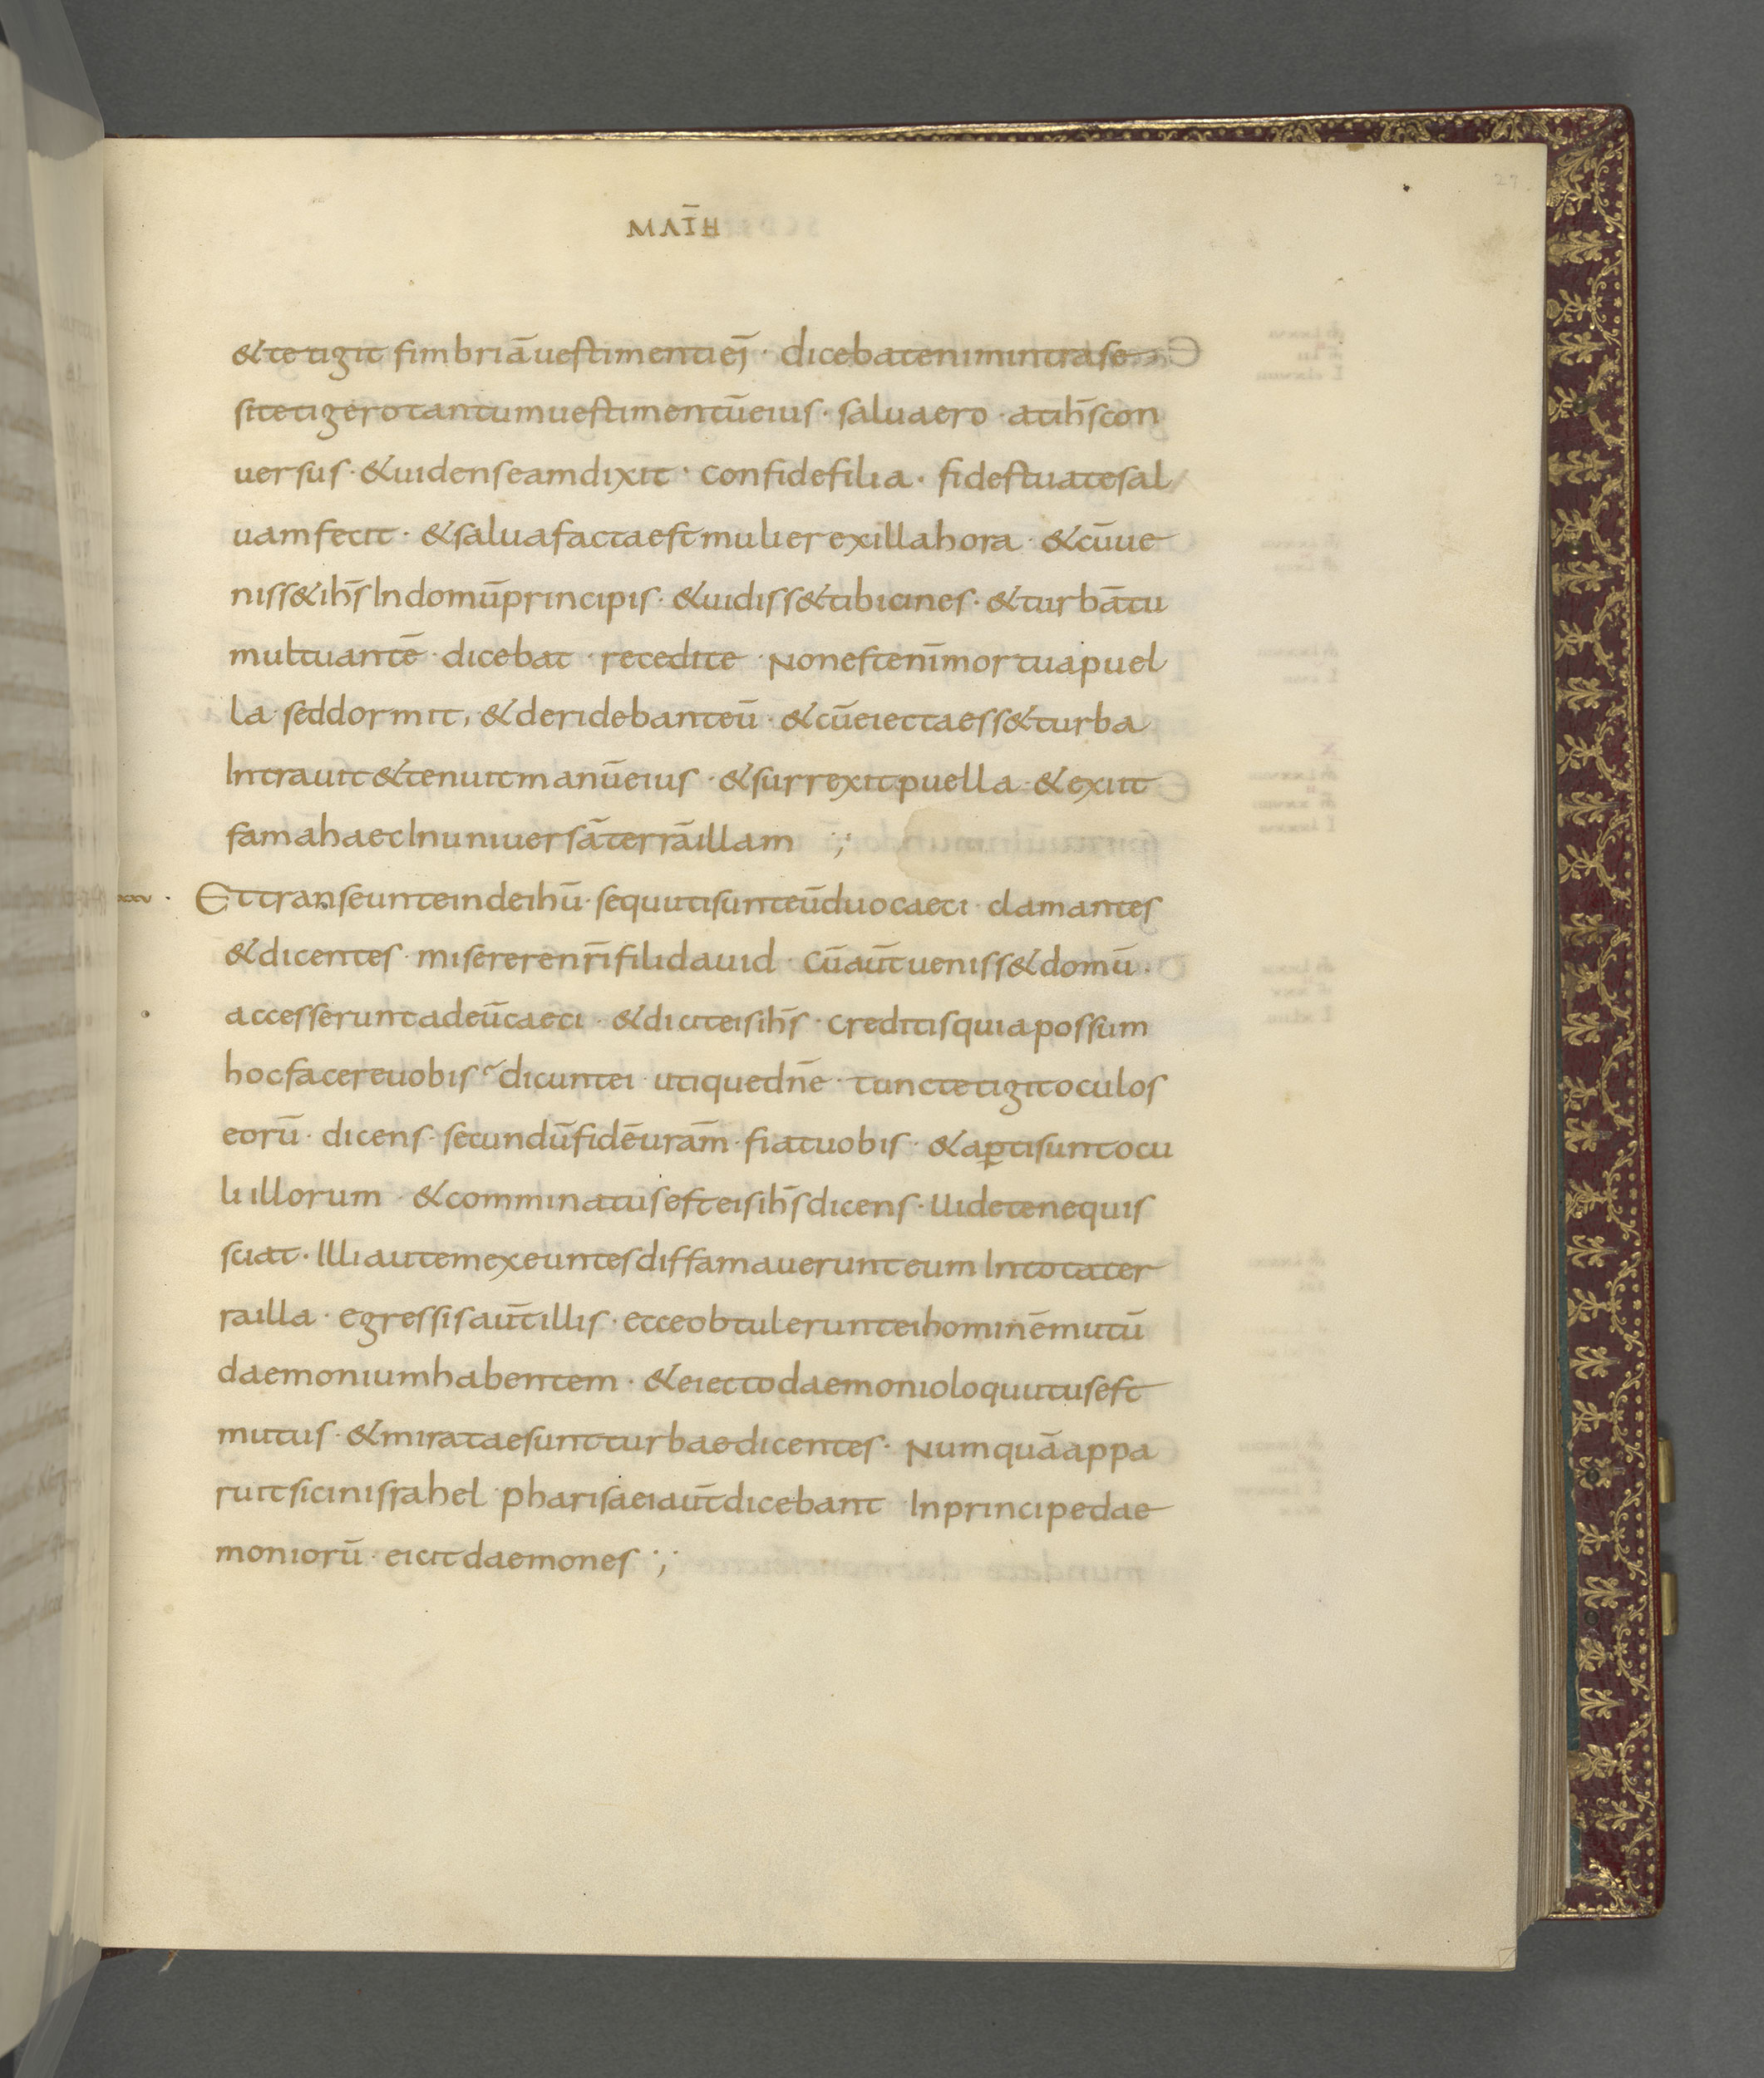 27.
MAT̄H
& tetigit fimbriā uestimenti ej̄ · dicebat enim intra se
si tetigero tantum uestimentū eius · salua ero · at ih̄s con
uersus · & uidens eam dixit · confide filia · fides tua te sal
uam fecit · & salua facta est mulier ex illa hora · & cū ue
niss& ih̄s In domū principis · & uidiss& tibicines · & turbā tu
multuantē · dicebat · recedite · Non est enī mortua puel
la · sed dormit, & deridebant eū · & cū eiecta ess& turba
Intrauit & tenuit manū eius · & surrexit puella · & exiit
fama haec In uniuersā terrā illam ·,·
Et transeunte inde ihū · sequuti sunt eū duo caeci · clamantes
& dicentes · miserere nr̄i fili dauid · Cū aūt ueniss& domū ·
accesserunt ad eū caeci · & dicit eis ih̄s · creditis quia possum
hoc facere uobis · dicunt ei · utique dn̄e · tunc tetigit oculos
eorū · dicens · secundū fidē ur̄am · fiat uobis · & ap̱ti sunt ocu
li illorum · & comminatus est eis ih̄s dicens · Uidete ne quis
sciat · Illi autem exeuntes diffamauerunt eum In tota ter
ra illa · egressis aūt illis · ecce obtulerunt ei hominē mutū
daemonium habentem · & eiecto daemonio loquutus est
mutus · & miratae sunt turbae dicentes · Numquā appa
ruit sic in israhel · pharisaei aūt dicebant · In principe dae
moniorū · eicit daemones ·,·